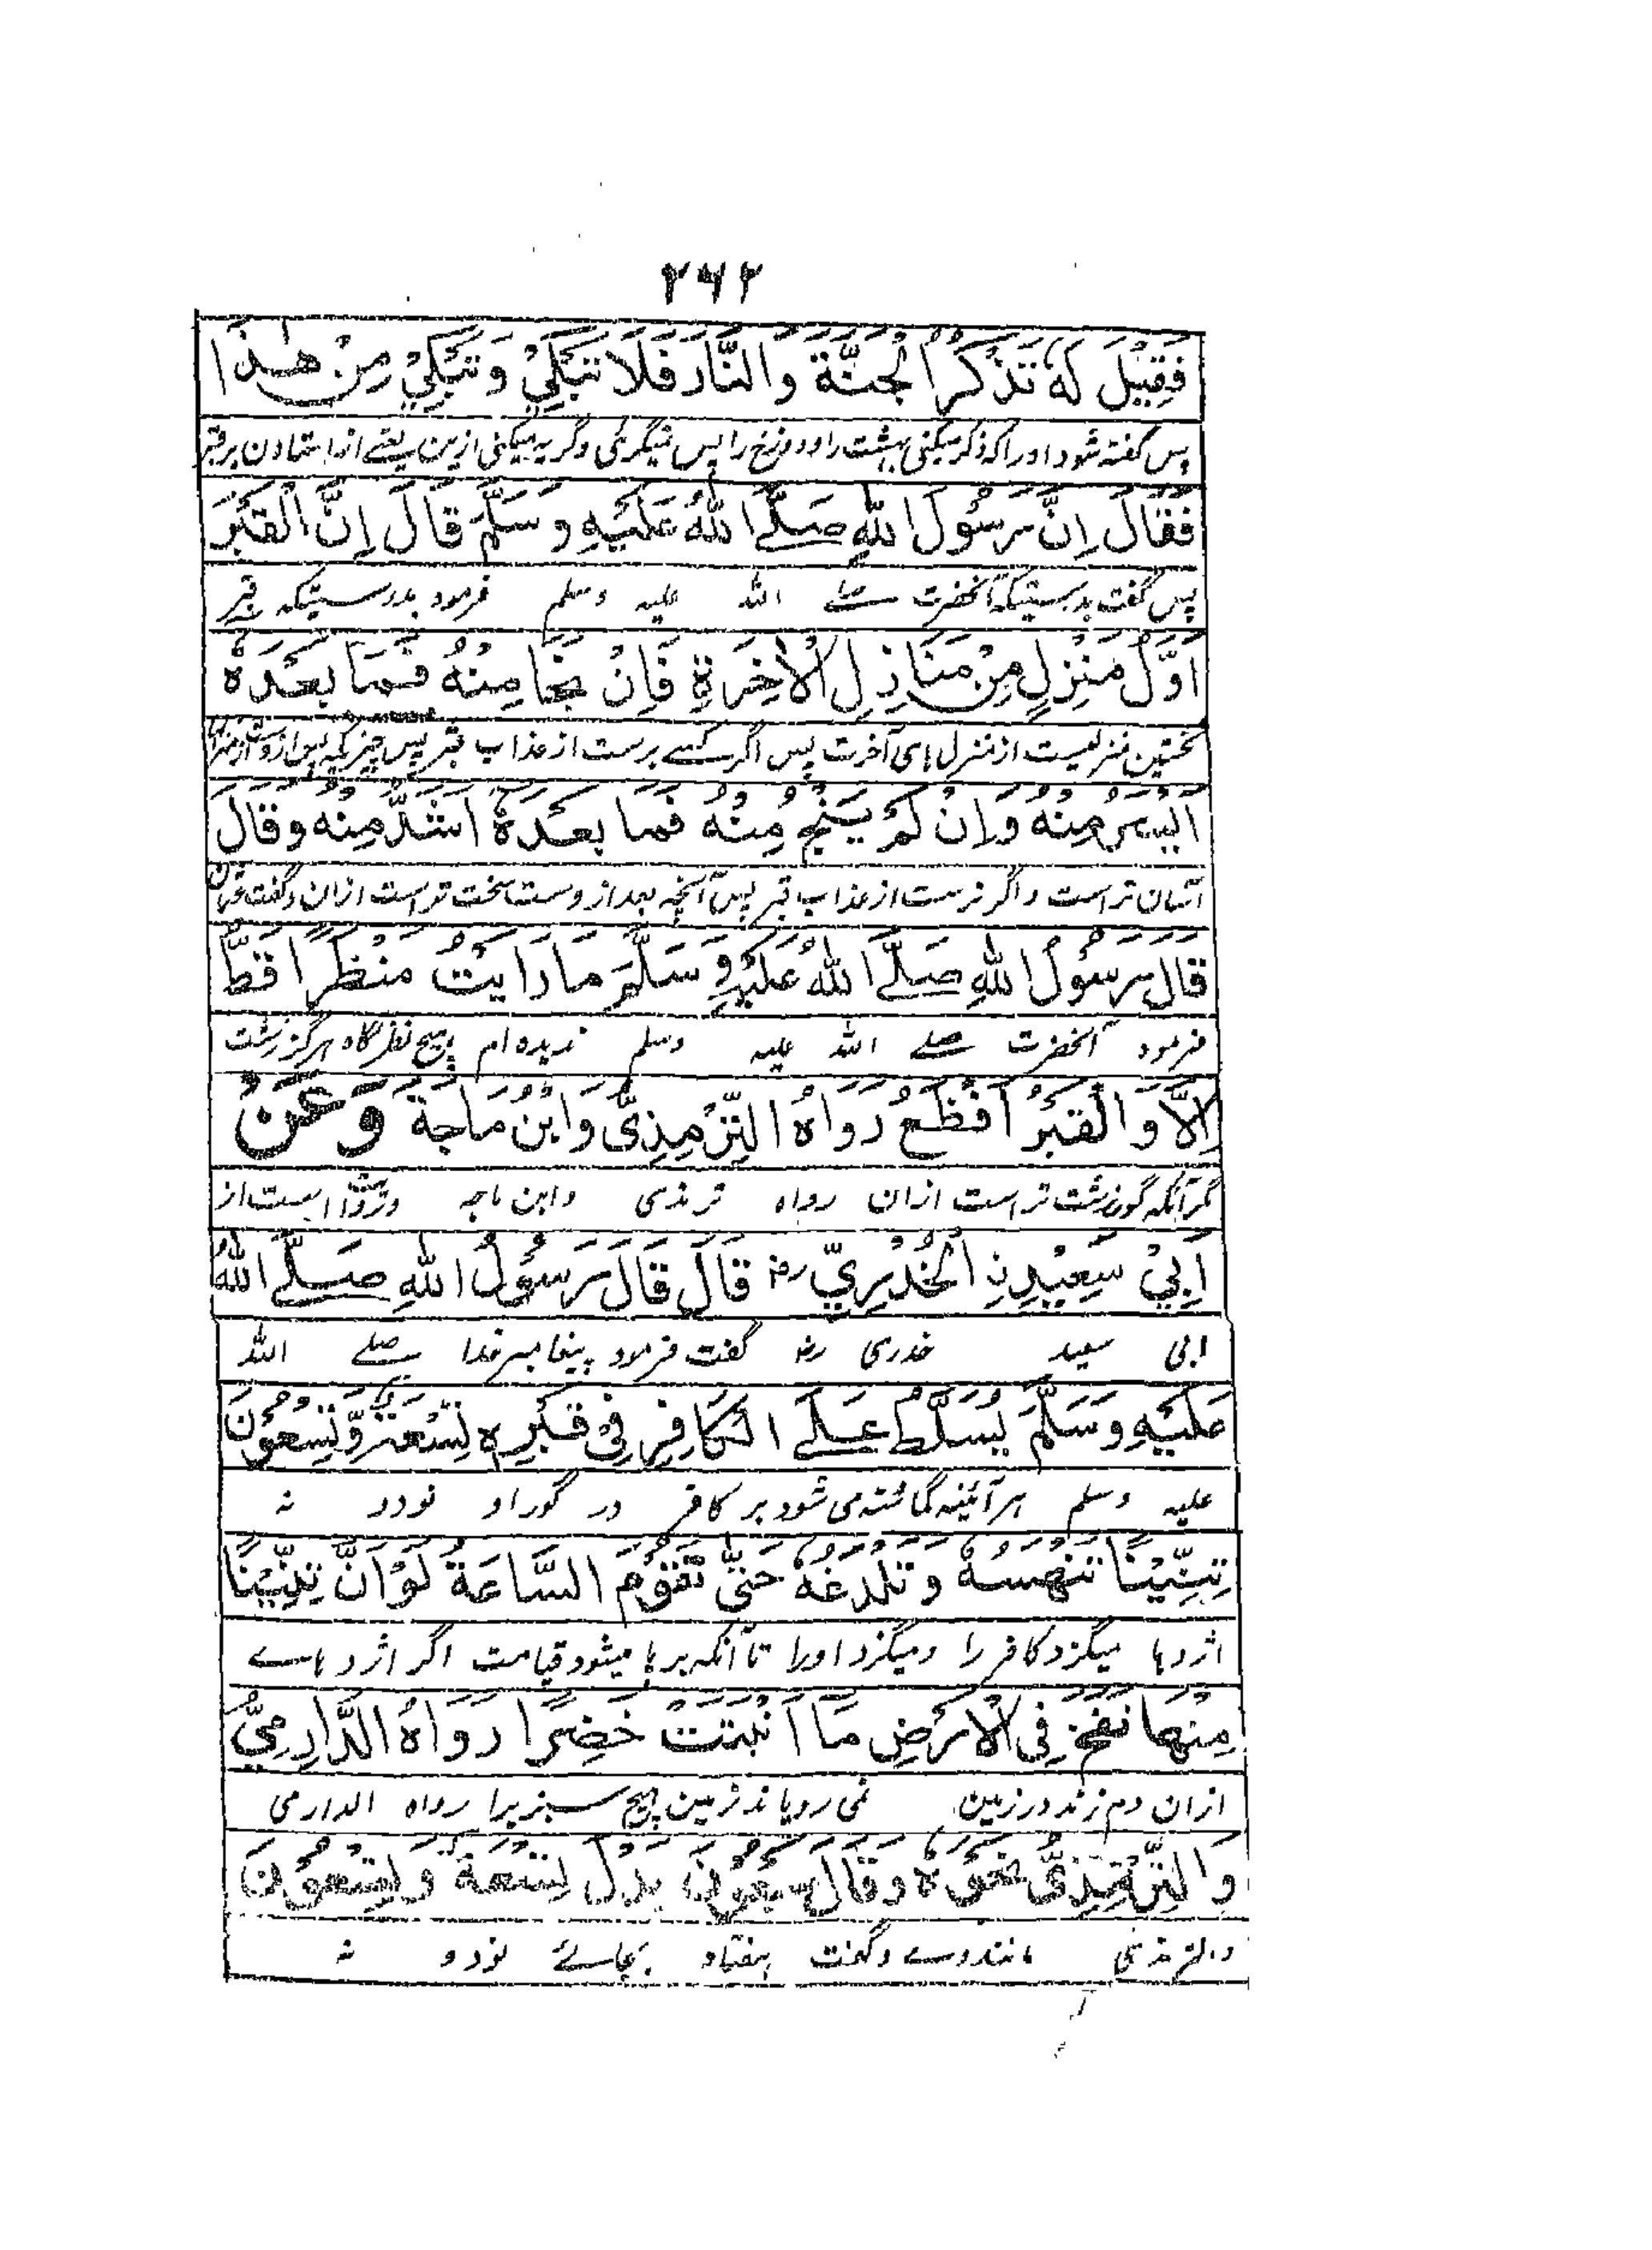 ۲۶۲
فَقِيْلَ لَهٗ تَذْكُرُ الْجَنَّةَ وَالنَّارَ فَلَا تَبْكِيْ وَتَبْكِيْ مِنْ هٰذَا
پس گفته شود اورا که ذکر میکنی بهشت را و دوزخ را پس نمیگرئی و گریه میکنی ازین یعنے از استادن بر قبر
فَقَالَ اِنَّ رَسُوْلَ اللّٰهِ صَلَّے اللّٰهُ عَلَيْهِ وَسَلَّمَ قَالَ اِنَّ الْقَبْرَ
پس گفت بدرستیکه آنحضرت صلے الله علیه وسلم فرمود بدرستیکه قبر
اَوَّلُ مَنْزِلٍ مِنْ مَنَازِلِ الْاٰخِرَةِ فَاِنْ نَجَا مِنْهُ فَمَا بَعْدَهٗ
نخستین منزلیست از منزل های آخرت پس اگر کسے برست از عذاب قبر پس چیزیکه بعد ازوست از منزلها
اَيْسَرُ مِنْهُ وَاِنْ لَمْ يَنْجُ مِنْهُ فَمَا بَعْدَهٗ اَشَدُّ مِنْهُ وَقَالَ
آسان تر است و اگر نرست از عذاب قبر پس آنچه بعد از وست سخت تر است ازان و گفت عثمان
قَالَ رَسُوْلُ اللّٰهِ صَلَّے اللّٰهُ عَلَيْهِ وَسَلَّمَ مَا رَاَيْتُ مَنْظَرًا قَطُّ
فرمود آنحضرت صلے الله علیه وسلم ندیده ام هیچ نظرگاه هرگز زشت
اِلَّا وَالْقَبْرُ اَفْظَعُ رَوَاهُ التِّرْمِذِىُّ وَابْنُ مَاجَةَ وَعَنْ
مگر آنکه گور زشت تر است ازان رواه ترمذی وابن ماجه و است از
اَبِيْ سَعِيْدِنِ الْخُدْرِيِّ رض قَالَ قَالَ رَسُوْلُ اللّٰهِ صَلَّے اللّٰهُ
ابی سعید خدری رض گفت فرمود پیغامبر خدا صلے الله
عَلَيْهِ وَسَلَّمَ يُسَلَّطُ عَلَے الْكَافِرِ فِىْ قَبْرِهٖ تِسْعَةٌ وَّتِسْعُوْنَ
علیه وسلم هر آئینه گماشته می شود بر کافر در گور او نود و نه
تِنِّيْنًا تَنْهَسُهٗ وَتَلْدَغُهٗ حَتّٰى تَقُوْمَ السَّاعَةُ لَوْ اَنَّ تِنِّيْنًا
اژدها میگزد کافر را و میگزد اورا تا آنکه برپا میشود قیامت اگر اژدهاے
مِنْهَا نَفَخَ فِى الْاَرْضِ مَا اَنْبَتَتْ خَضِرًا رَوَاهُ الدَّارِمِىُّ
ازان دم زند در زمین نمی رویاند زمین هیچ سبزیرا رواه الدارمی
وَالتِّرْمِذِىُّ نَحْوَهٗ وَقَالَ سَبْعُوْنَ بَدَلَ تِسْعَةٌ وَتِسْعُوْنَ
والترمذی مانند وے و گفت هفتاد بجائے نود و نه